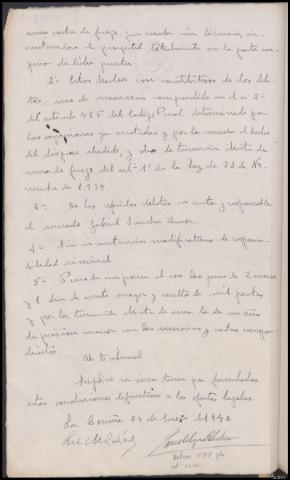 arma corta de fuego, que usaba sin licencia in-
crustandose el proyectil totalmente en la parte su-
perior de dicha puerta.
2º- Estos hechos son constitutivos de dos deli-
tos, uno de amenazas comprendido en el nº 2º
del articulo 485 del Codigo Penal determinado por
las expresiones ya anotadas y por la el hecho
del disparo aludido, y otro de tenencia ilicita de
arma de fuego del artº 1º de la Ley de 22 de No-
viembre de 1.934.
3º- De los referidos delitos es autor y responsable
el procesado Gabriel
4º- Sin circunstancias modificativas de responsa-
bilidad criminal.
5º- Procede imponer al reo las penas de 2 meses
y 1 dia de arresto mayor y multa de mil pesetas
y por la tenencia ilicita de arma la de un año
de prision menor con las accesorias y costas correspon-
dientes.
Al Tribunal
Suplico se sirva tener por formuladas
estas conclusiones definitivas a los efectos legales.
La Coruña 29 de Enero de 1942